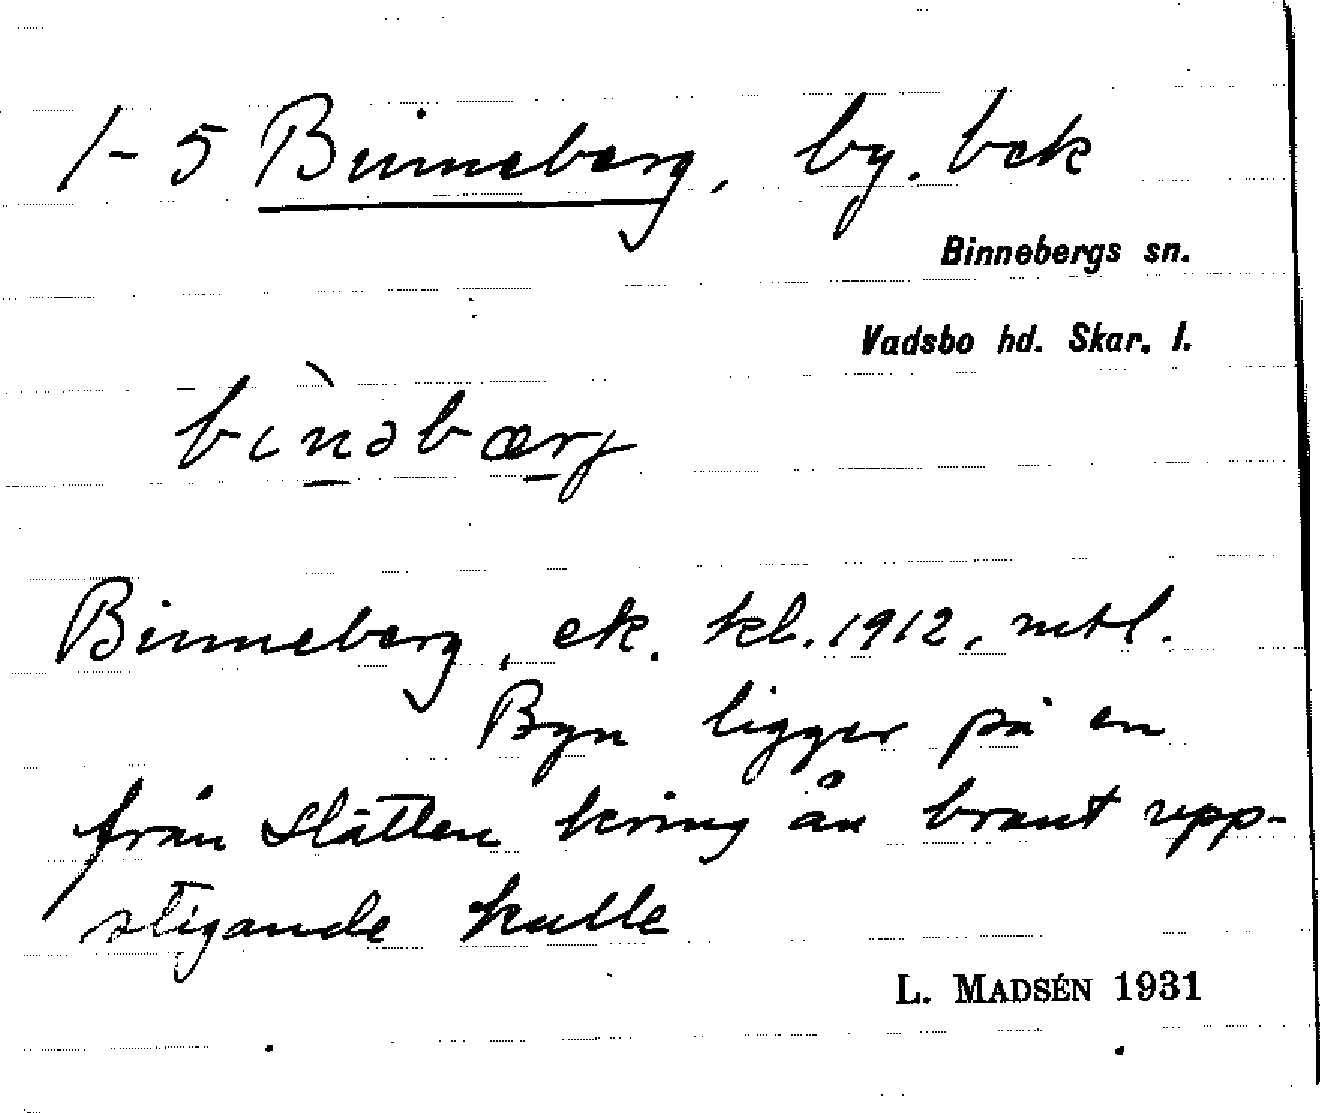 1-5 Binneberg, by. bek
Binnebergs sn.
Vadsbo hd. Skar. l.
bìnəbærj
Binneberg, ek. kb. 1912, mtl.
Byn ligger på en
från slätten kring ån brant upp-
stigande kulle
L. MADSÉN 1931